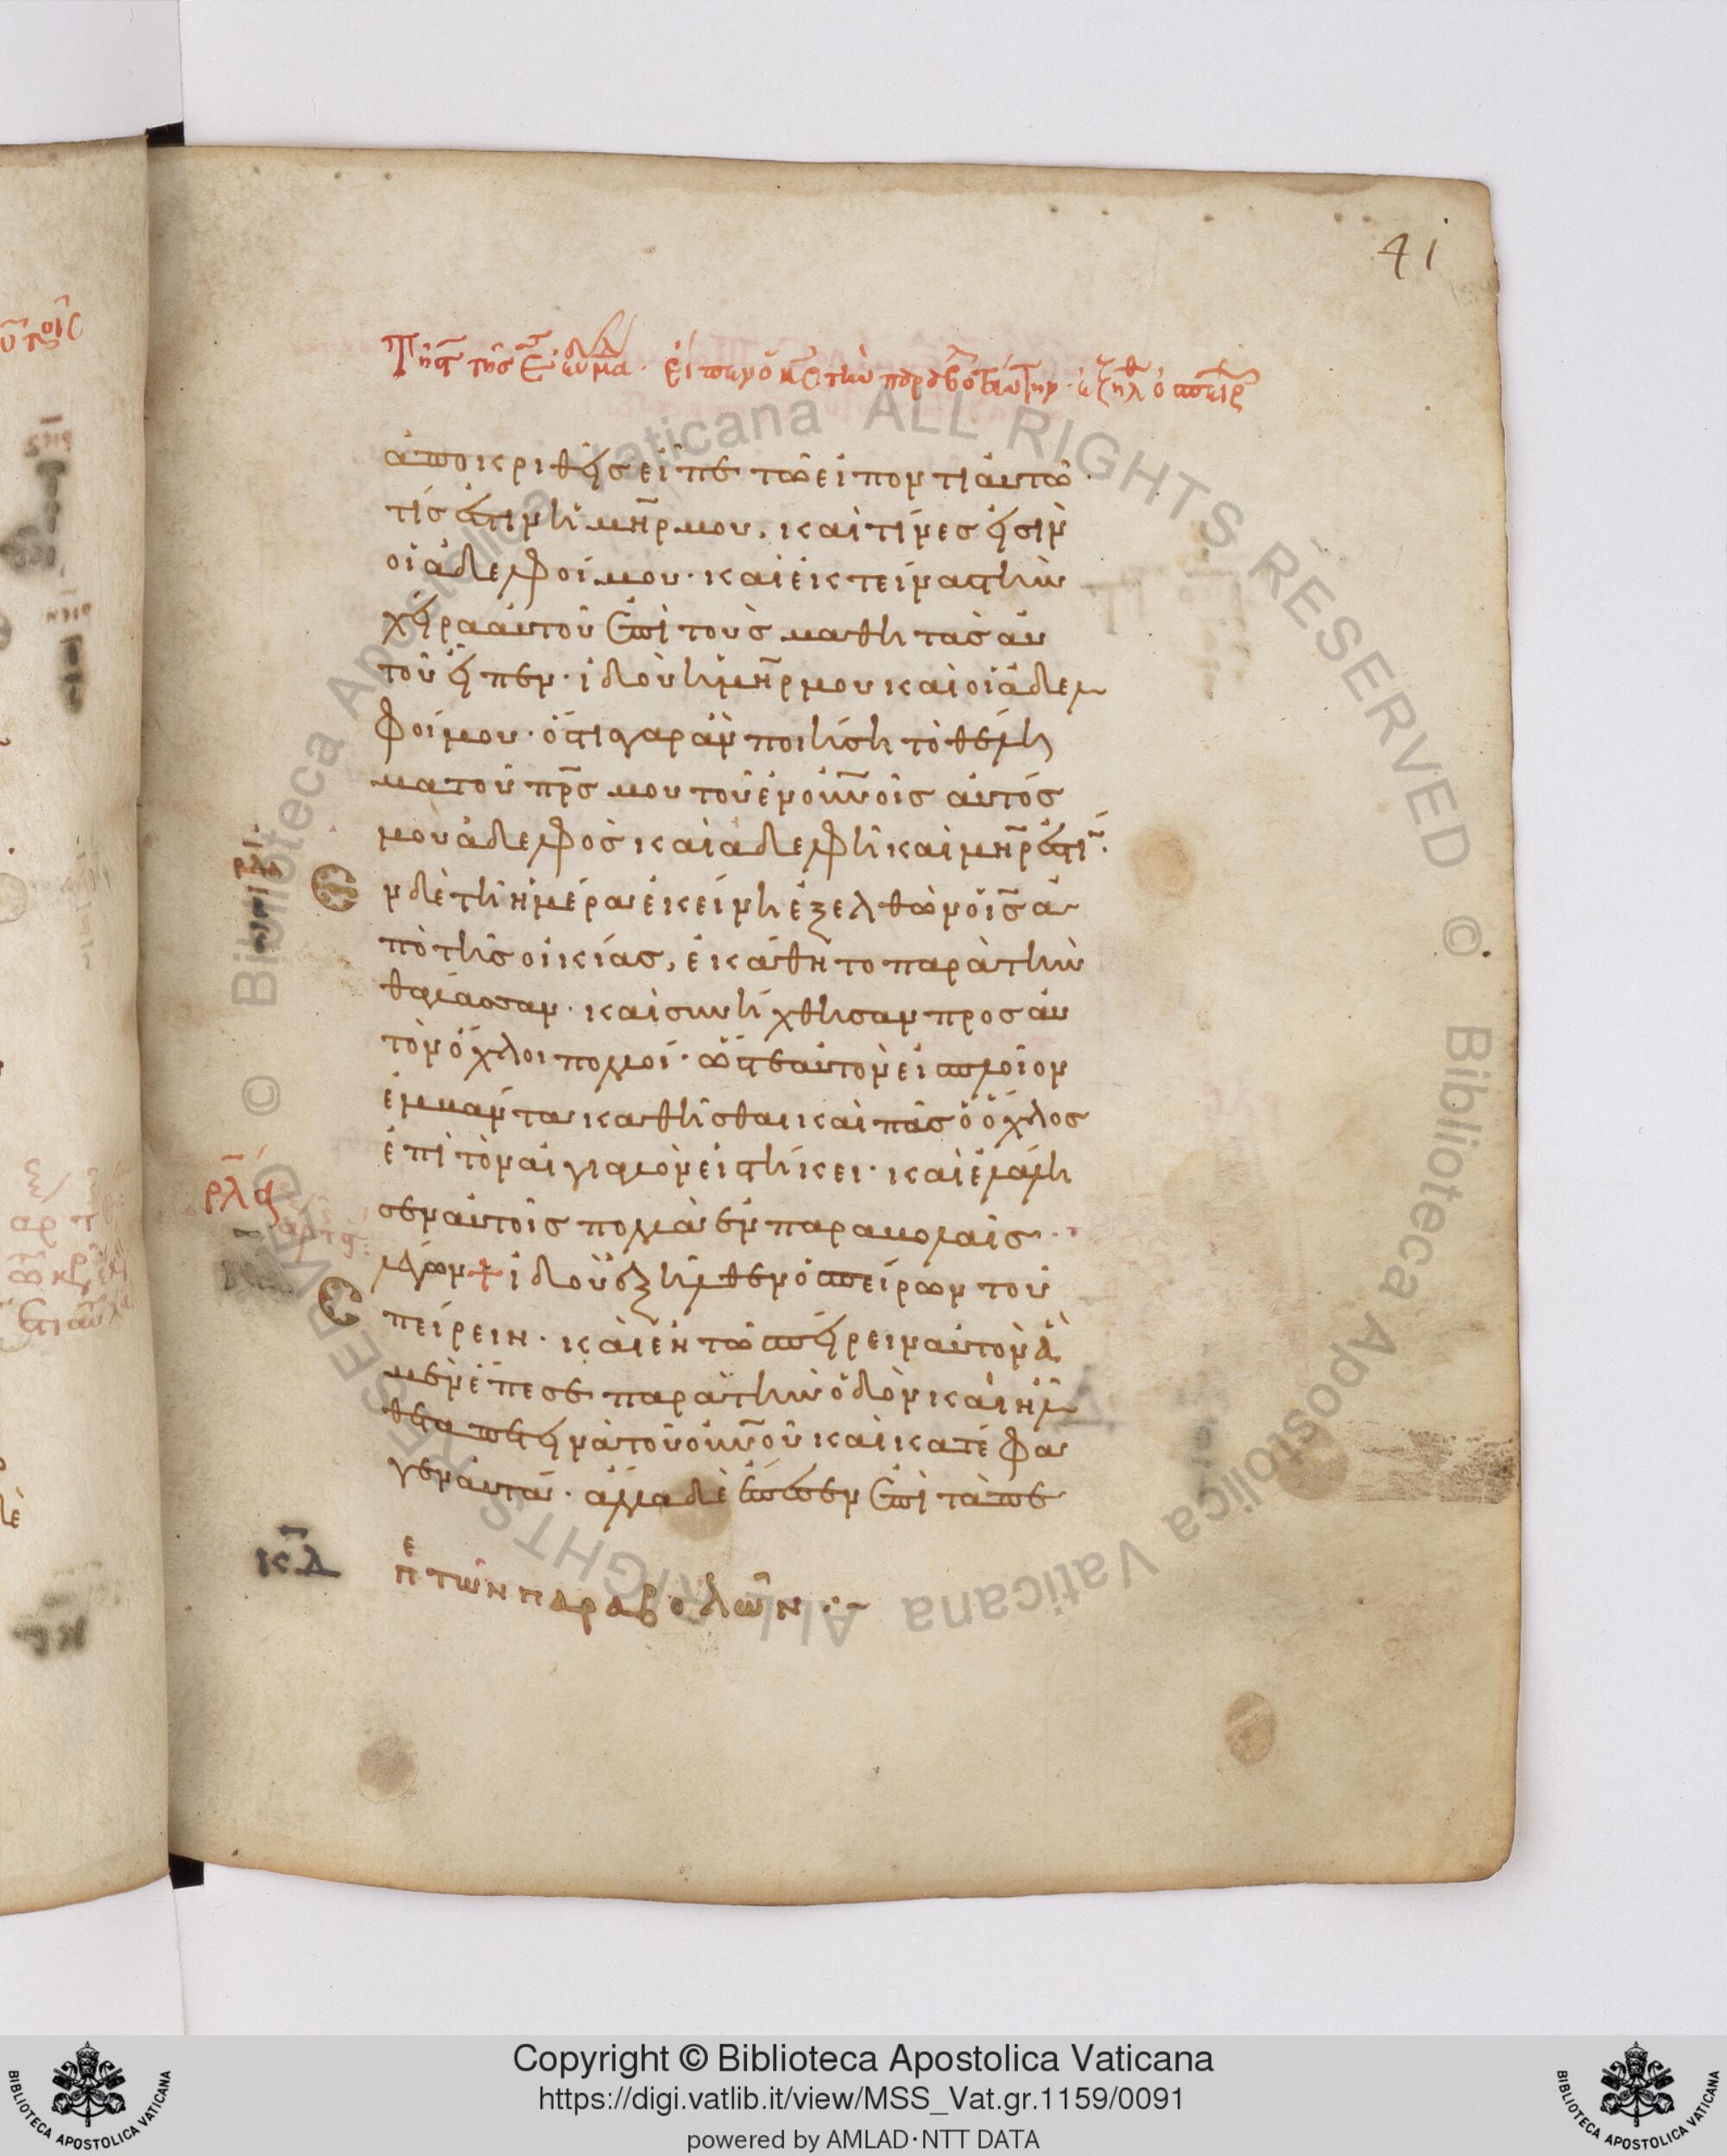 41
ἀποκριθεὶς εἶπε τῶ εἰπόντι ἀυτῶ·
τίς ἐστιν ἡ μη̅ρ μου, καὶ τίνες εἰσὶν
οἱ ἀδελφοί μου· καὶ ἐκτείνας τὴν
χεῖρα ἀυτοῦ ἐπὶ τοὺς μαθητὰς ἀυ
τοῦ εἶπεν· ἰδοὺ ἡ μη̅ρ μου καὶ οἱ ἀδελ
φοί μου· ὅστις γὰρ ἂν ποιήση τὸ θέλη
μα τοῦ πρ̅ς μου τοῦ ἐν οὐνοῖς ἀυτός
μου ἀδελφὸς καὶ ἀδελφὴ καὶ μη̅ρ ἐστί̅·
ν δὲ τῆ ἡμέρα ἐκείνη ἐξελθὼν ὁ ι̅ς ἀ
πὸ τῆς οἰκίας, ἐκάθητο παρὰ τὴν
θάλασσαν· καὶ συνήχθησαν προς ἀυ
τὸν ὄχλοι πολλοί· ὥστε ἀυτὸν εἰ πλοῖον
ἐμβάντα καθῆσθαι καὶ πᾶς ὁ ὄχλος
ἐπὶ τὸν αἰγιαλὸν εἱστήκει· καὶ ἐλάλη
σεν ἀυτοῖς πολλὰ ἐν παραβολαῖς
λέγων + ἰδοὺ ἐξῆλθεν ὁ σπείρων τοῦ
σπείρειν· καὶ ἐν τῶ σπείρειν ἀυτὸν ἃ
μὲν ἔπεσε παρὰ τὴν ὁδὸν καὶ ἦλ
θε τὰ πετεινὰ τοῦ οὐνοῦ καὶ κατέφα
γεν ἀυτά· ἄλλα δὲ ἔπεσεν ἐπὶ τὰ πε
ρλϛ
κδ
πε τῶν παραβολῶν·~
Copyright © Biblioteca Apostolica Vaticana
https://digi.vatlib.it/view/MSS_Vat.gr.1159/0091
powered by AMLAD·NTT DATA
BIBLIOTECA APOSTOLICA VATICANA
BIBLIOTECA APOSTOLICA VATICANA
© Biblioteca Apostolica Vaticana ALL RIGHTS RESERVED
© Biblioteca Apostolica Vaticana ALL RIGHTS RESERVED